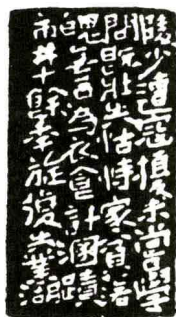 少遭寇擾未嘗學
問既壯失怙恃家貧落
魄無為衣食計溷
市井十餘年旋復失業